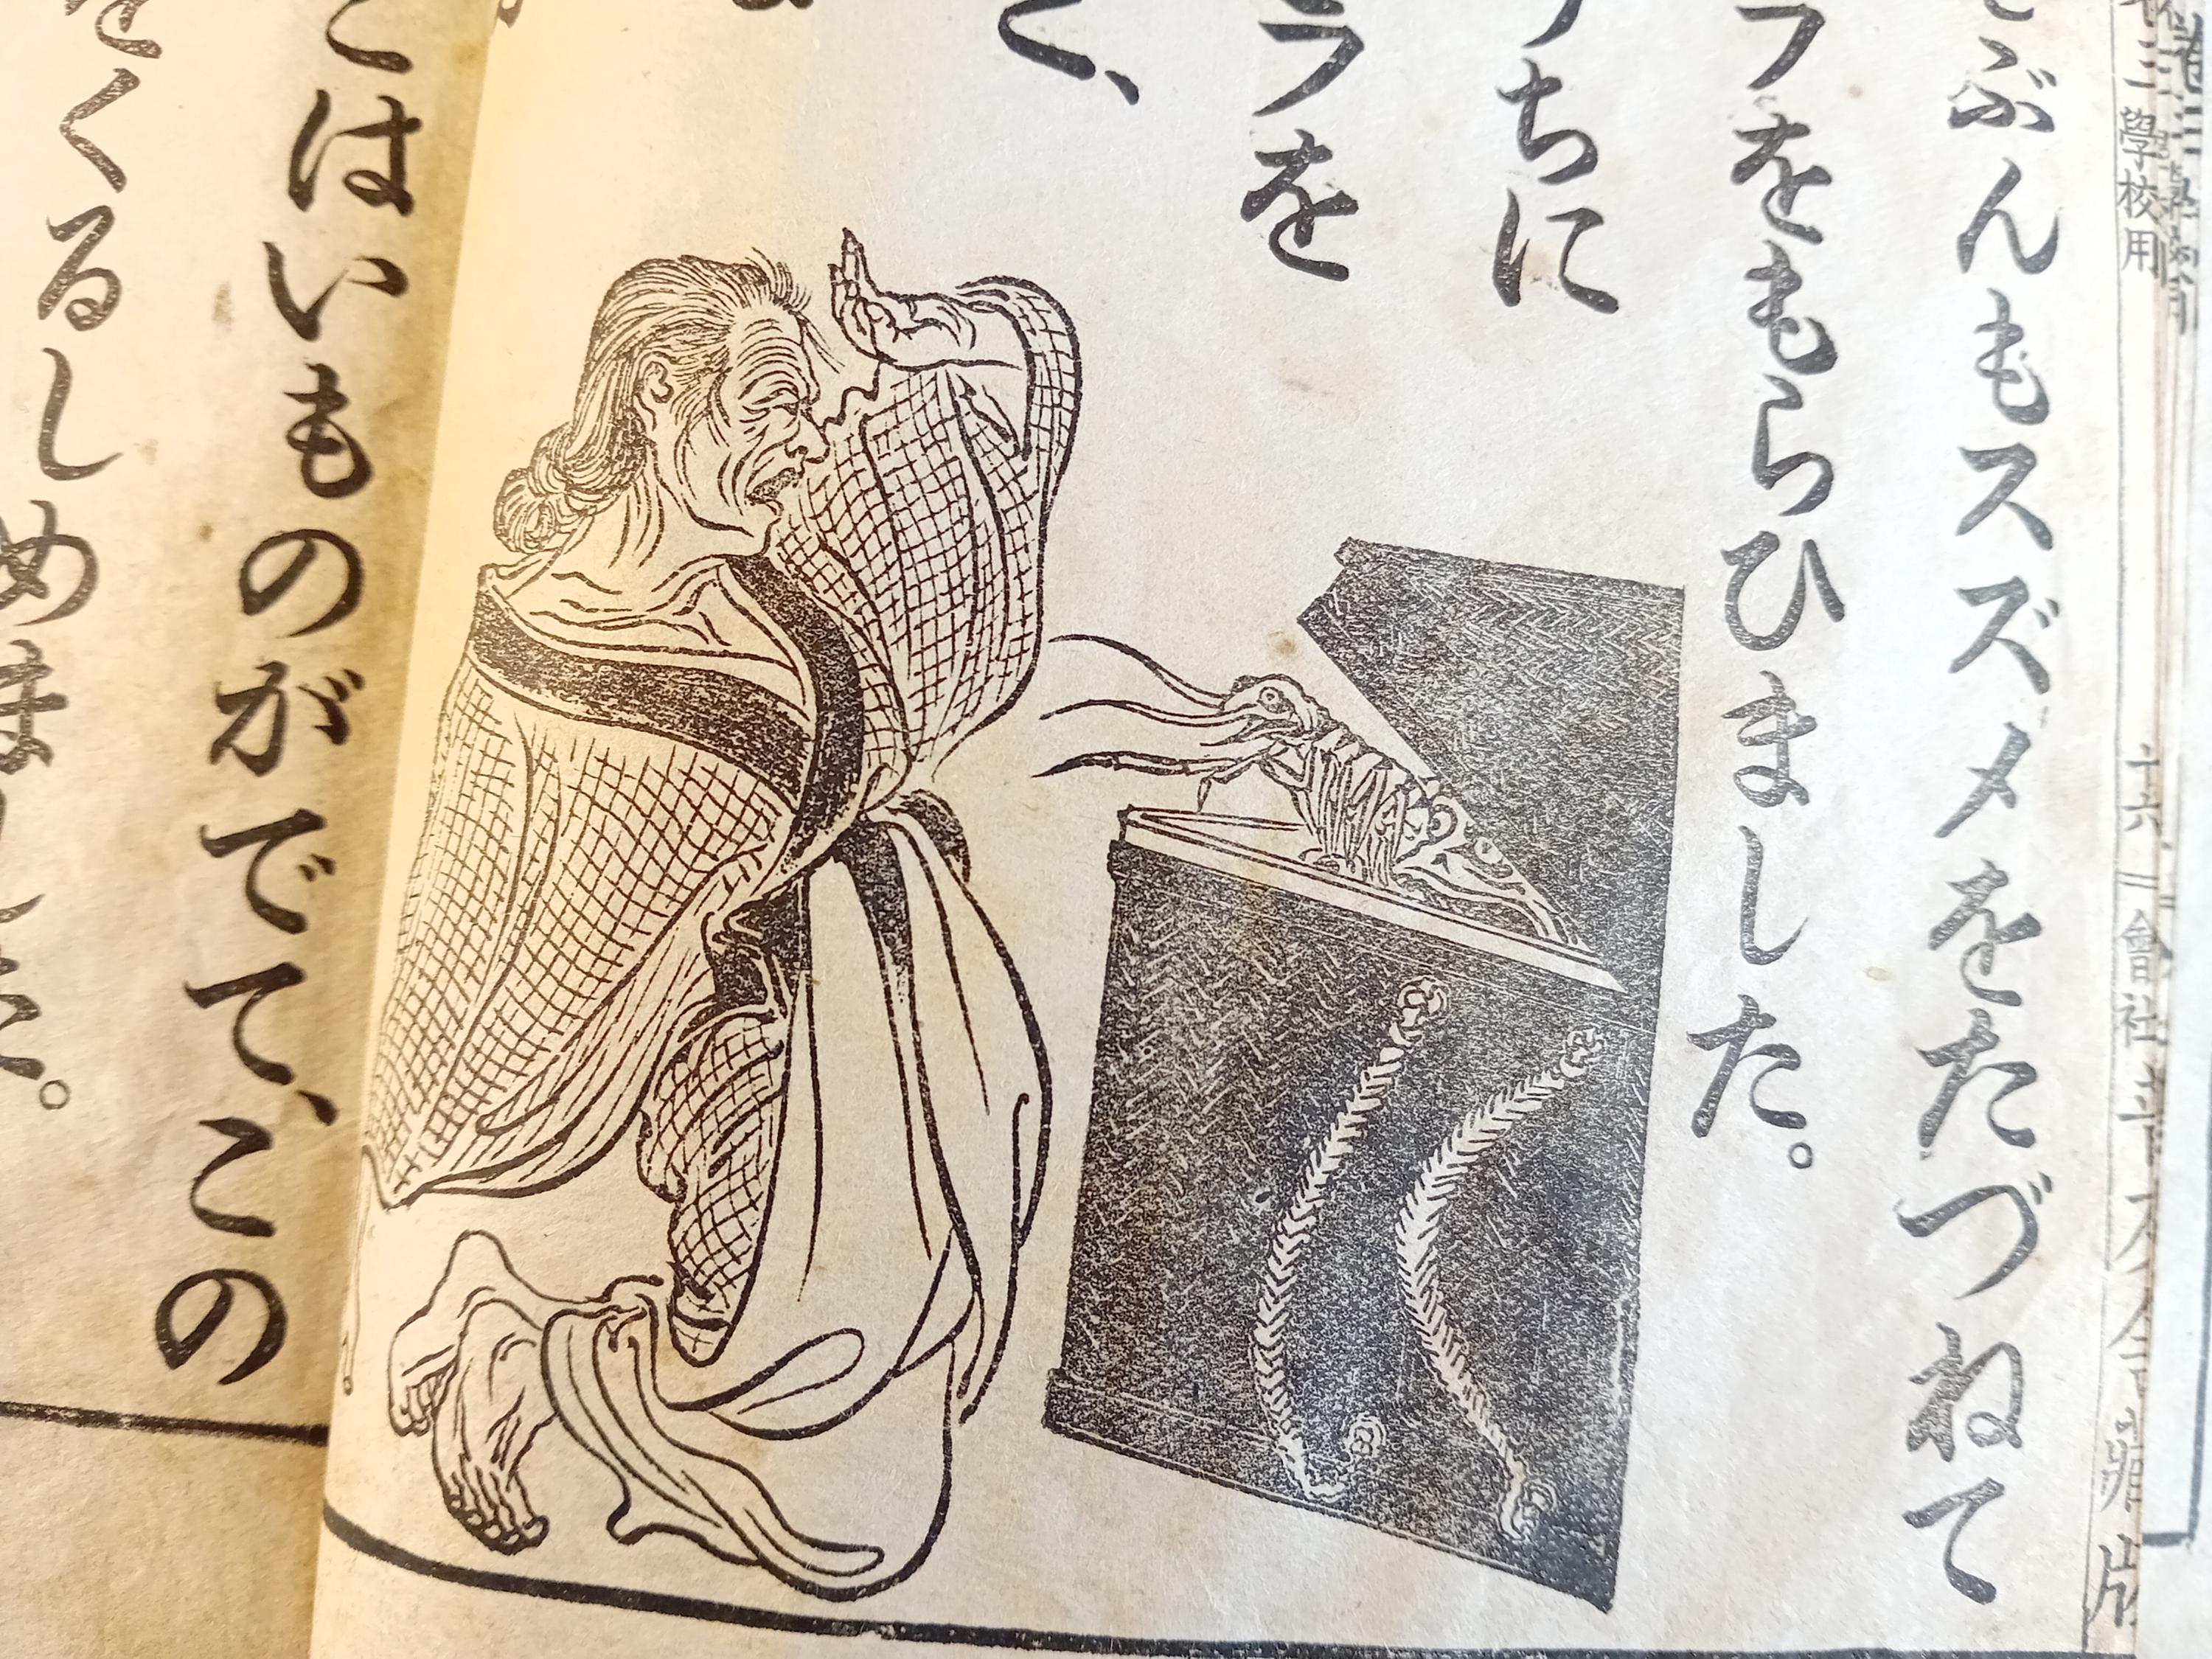 三學校用
十六
會社
ぶんもスズメをたづねて
をもらひました。
ちに
ラを
く、
こはいものがでて、この
をくるしめました。